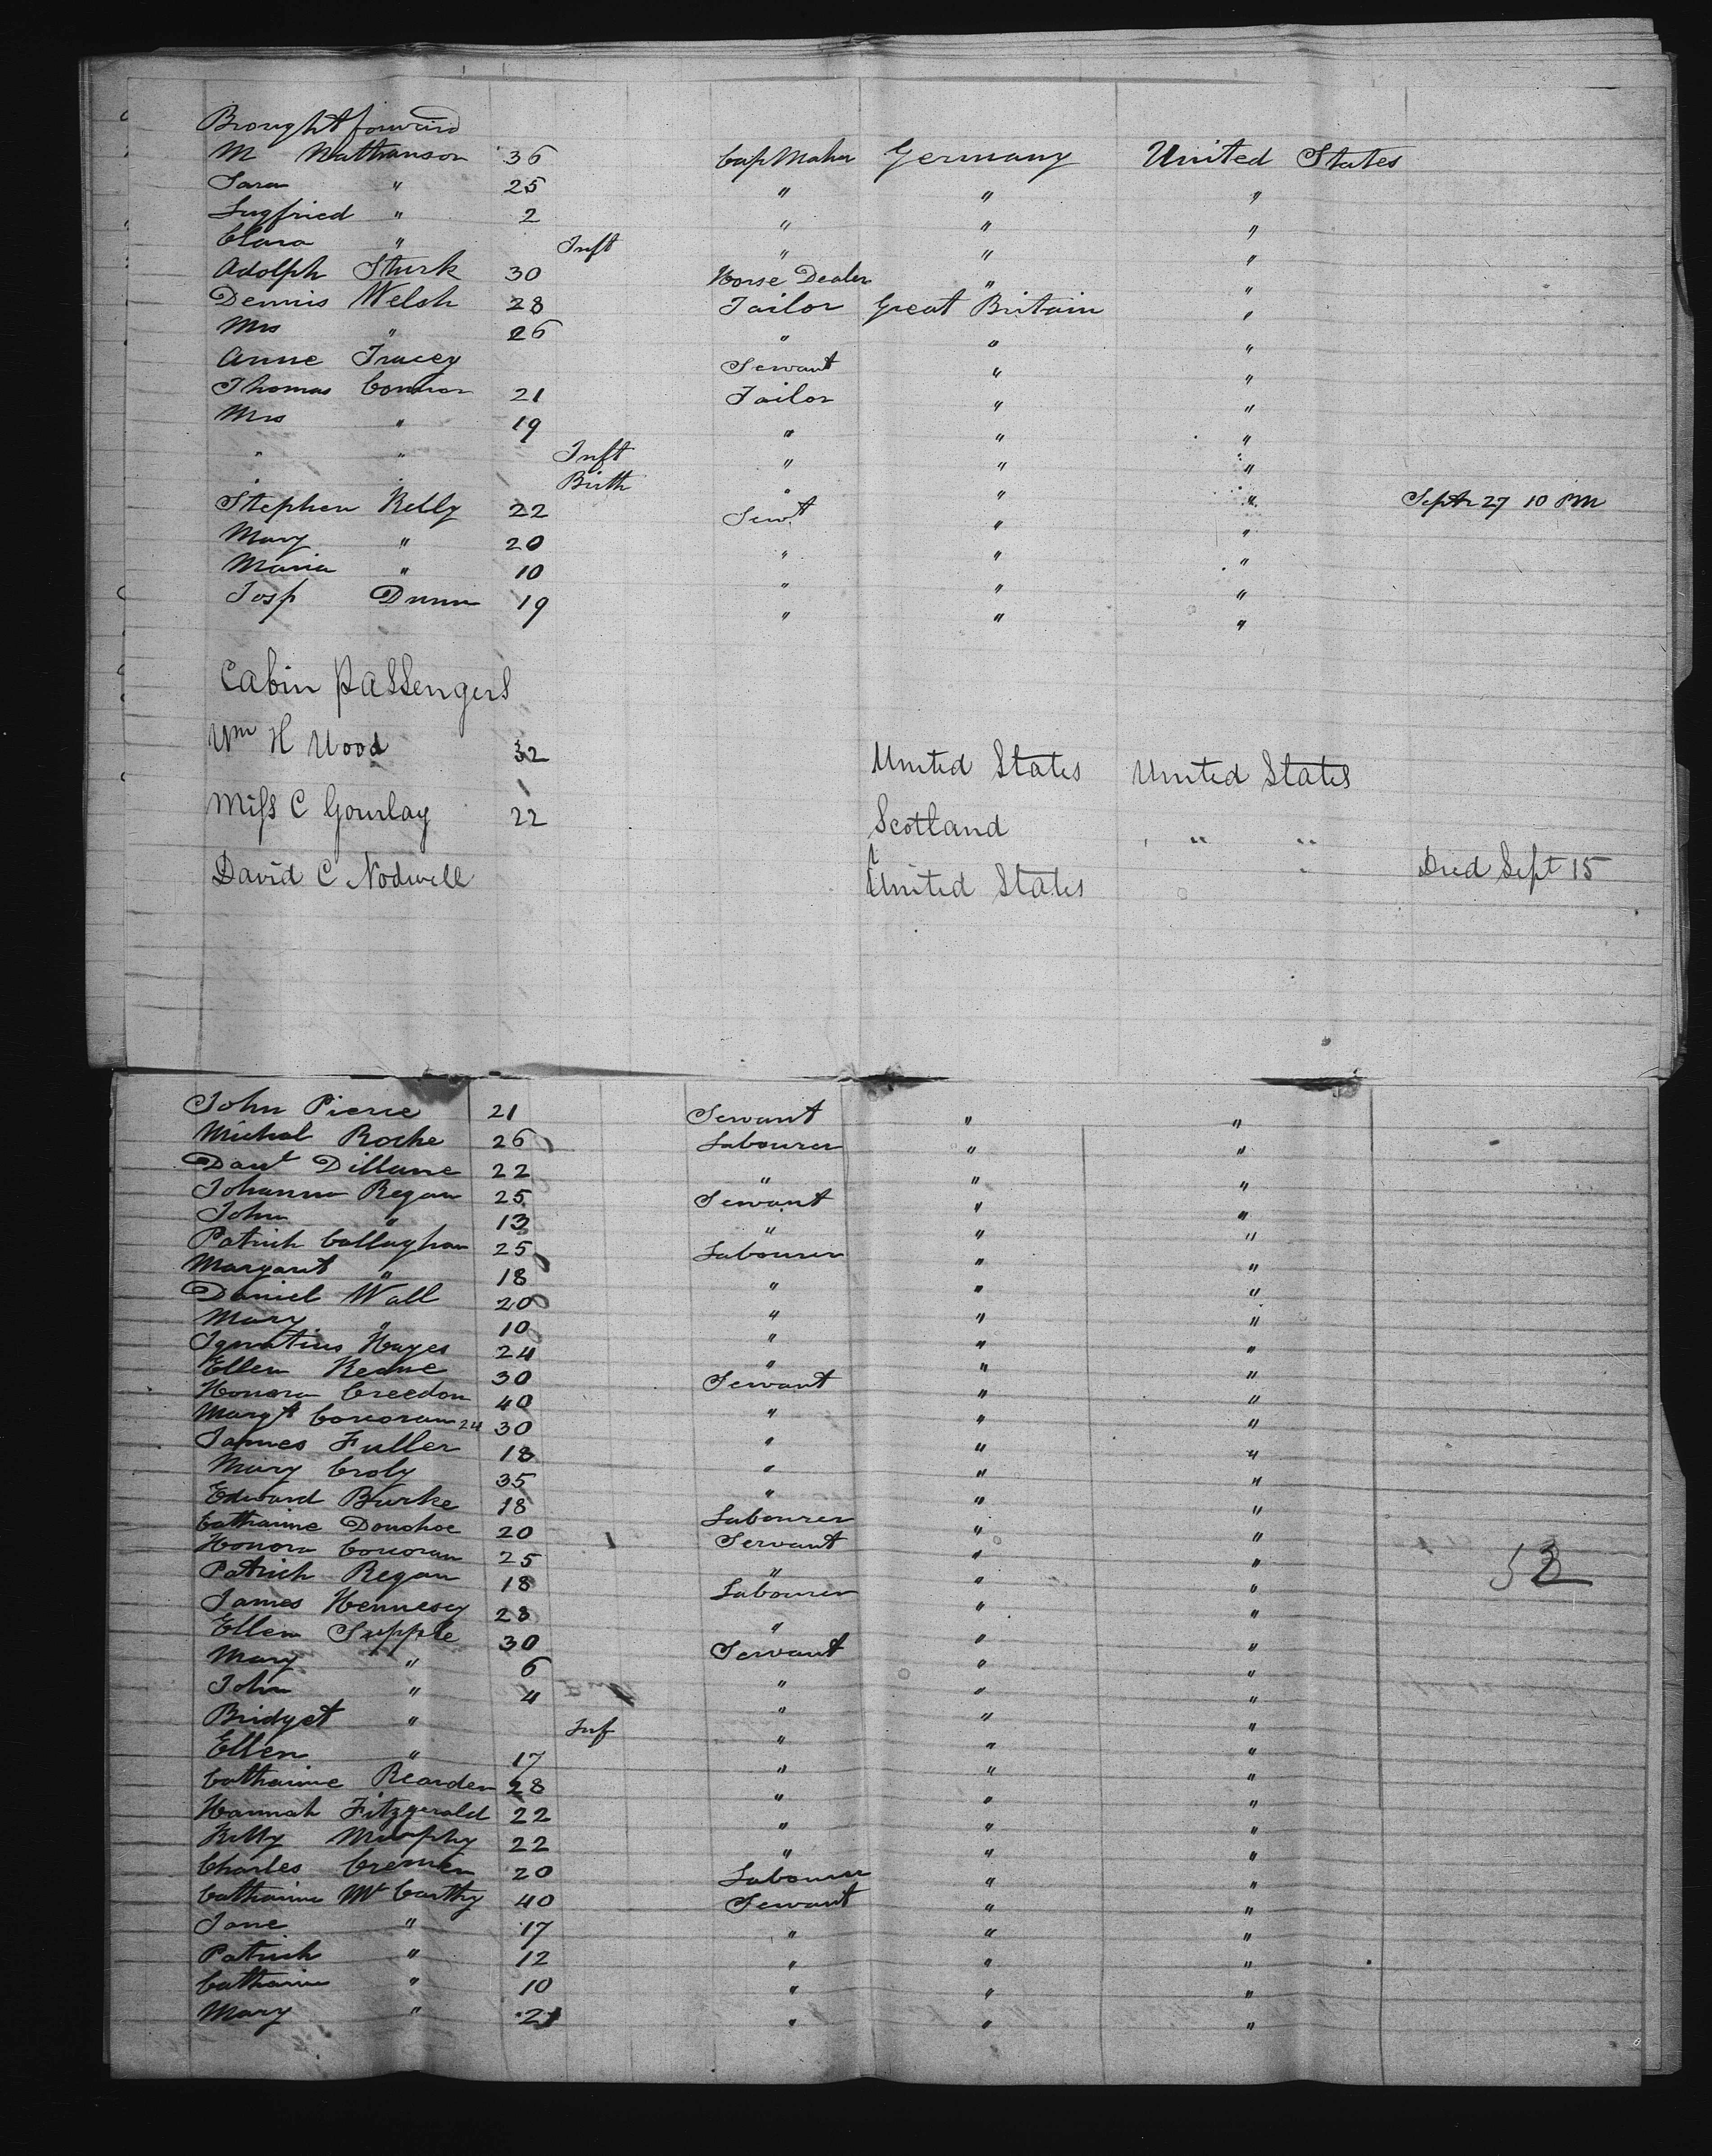 Brought forward
M Nathanson 36 Cap Maker Germany United States
Sara " 25 " " "
Sugfried " 2 " " "
Clara " Inft " " "
Adolph Sturk 30 Horse Dealer " "
Dennis Welsh 28 Tailor Great Britain "
Mrs " 26 " " "
Anne Tracey Servant " "
Thomas Connor 21 Tailor " "
Mrs " 19 " " "
" " Inft " " "
" " Birth " " " Septr 27 10 PM
Stephen Kelly 22 Servt " "
Mary " 20 " " "
Maria " 10 " " "
Josp Dunn 19 " " "
Cabin Passengers
Wm H Wood 32 United States United States
Miss C Gourlay 22 Scotland " "
David C Nodwell United States " Died Sept 15
John Pierce 21 Servant " "
Michal Roche 26 Labourer " "
Danl Dillane 22 " " "
Johanna Regan 25 Servant " "
John " 13 " " "
Patrick Callaghan 25 Labourer " "
Margaret " 18 " " "
Daniel Wall 20 " " "
Mary " 10 " " "
Ignatius Hayes 24 " " "
Ellen Keane 30 Servant " "
Honora Creedon 40 " " "
Margt Corcoran 24 30 " " "
James Fuller 18 " " "
Mary Croly 35 " " "
Edward Burke 18 Labourer " "
Catharine Donohoe 20 Servant " "
Honora Corcoran 25 " " "
Patrick Regan 18 Labourer " "
James Hennesey 28 " " "
Ellen Supple 30 Servant " "
Mary " 6 " " "
John " 4 " " "
Bridget " Inf " " "
Ellen " 17 " " "
Catharine Rearden 28 " " "
Hannah Fitzgerald 22 " " "
Kitty Murphy 22 " " "
Charles Cremen 20 Labourer " "
Catharine McCarthy 40 Servant " "
Jane " 17 " " "
Patrick " 12 " " "
Catharine " 10 " " "
Mary " 21 " " "